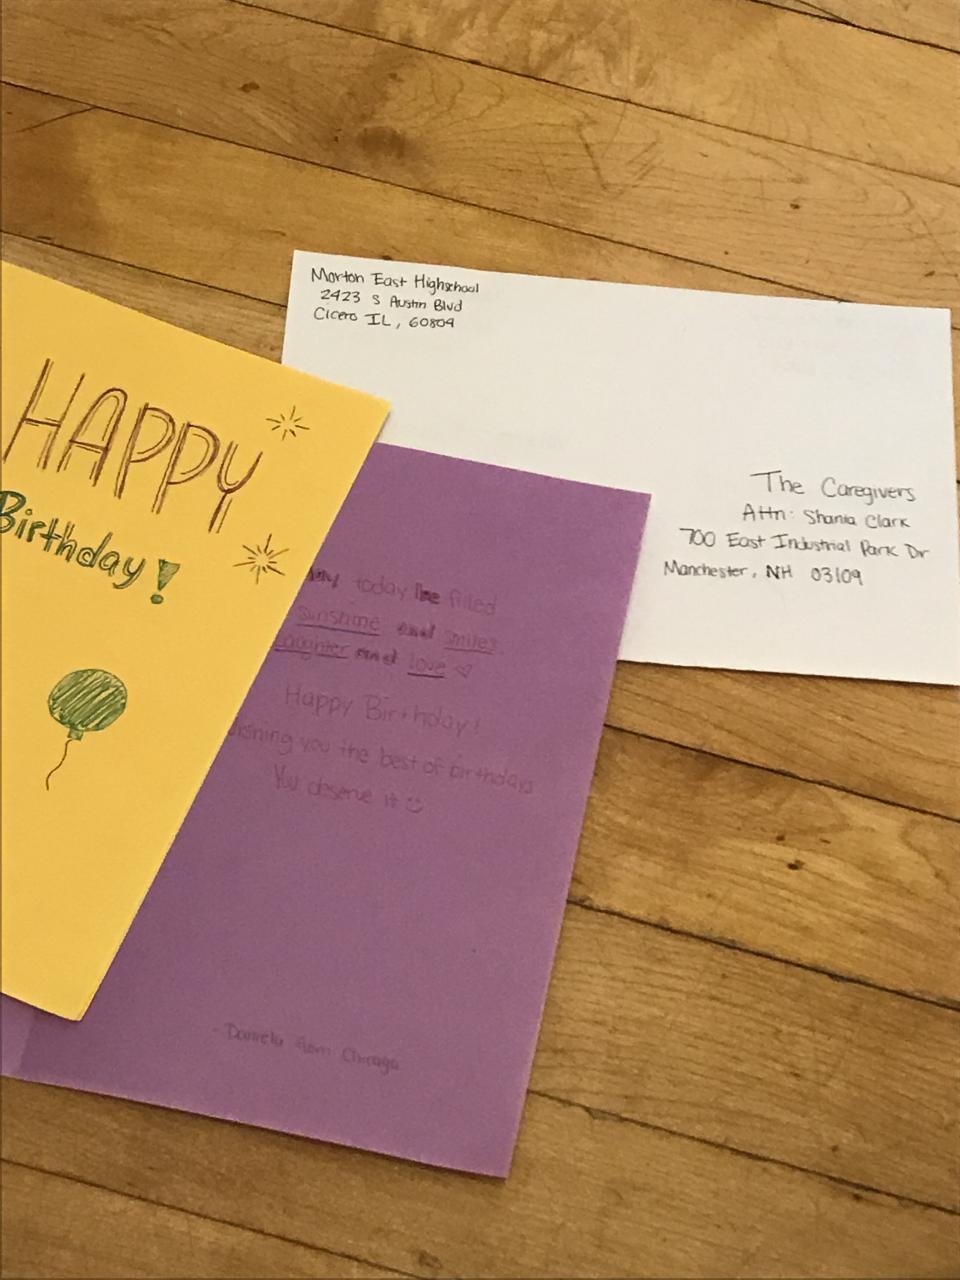 Morton East Highschool
2423 S Austin Blvd
Cicero IL, 60804
The Caregivers
Attn: Shania Clark
700 East Industrial Park Dr
Manchester, NH 03109
HAPPY
Birthday!
May today be filled
sunshine and smiles
laughter and love
Happy Birthday!
wishing you the best of birthdays
You deserve it
- Daniela from Chicago